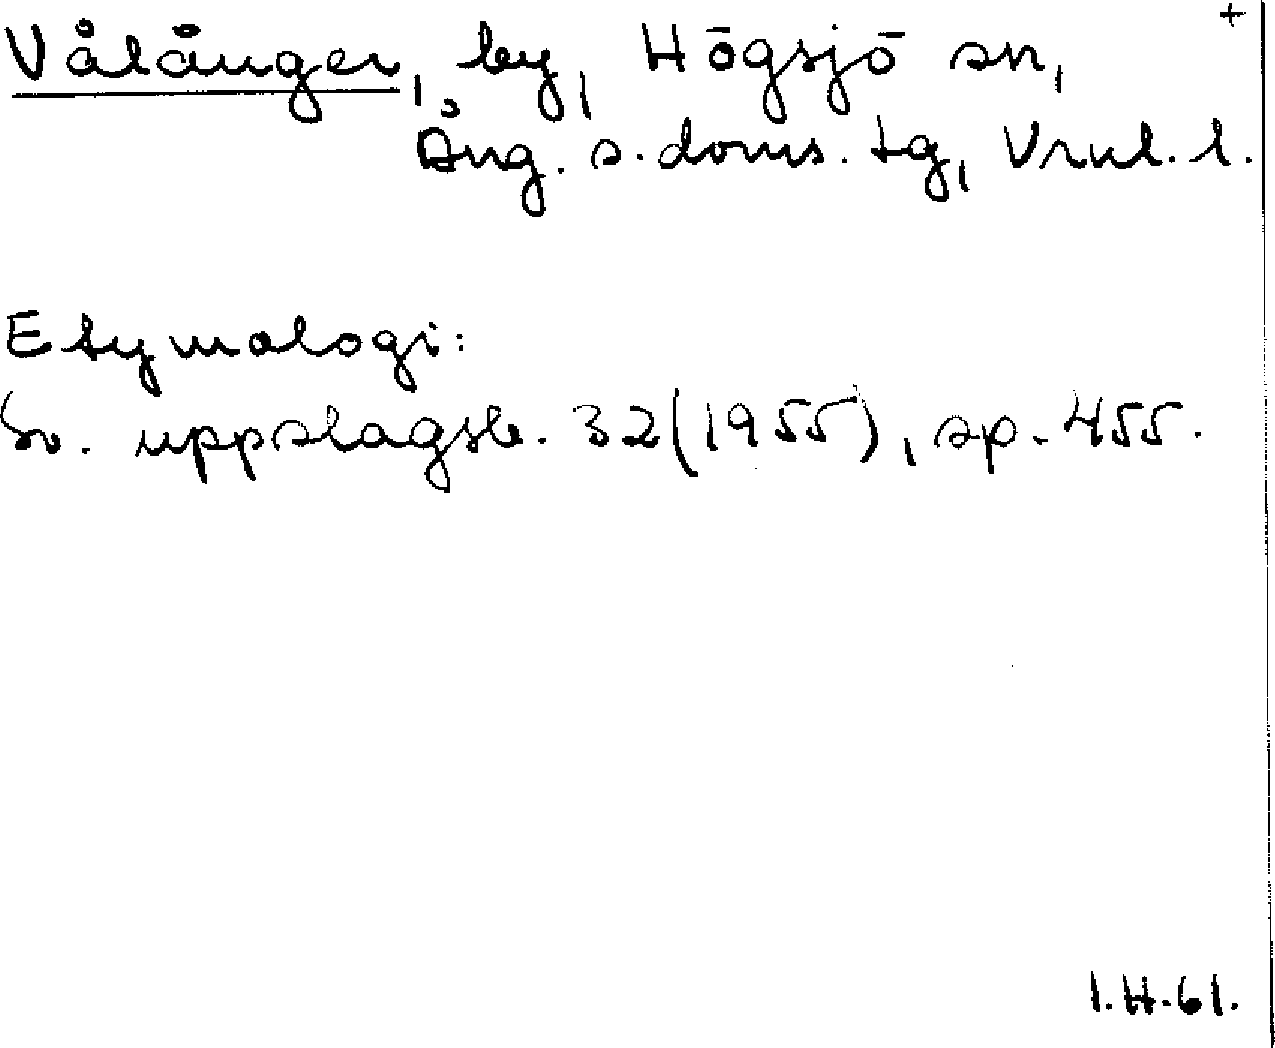 +
Vålånger, by, Högsjö sn,
Ång. s. doms. tg, Vrnl. l.
Etymologi:
Sv. uppslagsb. 32(1955), sp. 455.
I.H.61.